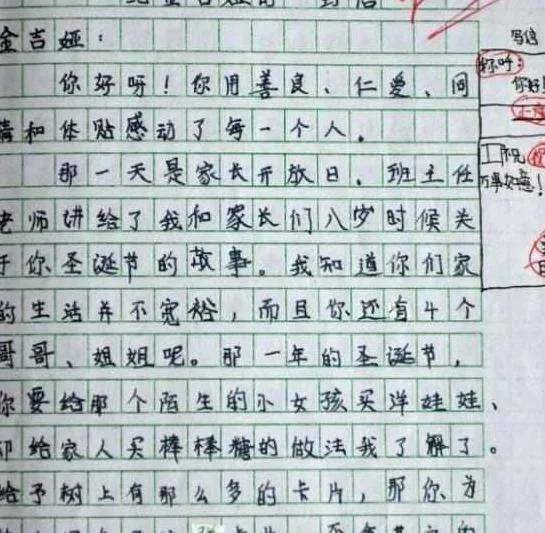 金吉娅：
你好呀！你用善良、仁爱、同
情和体贴感动了每一个人。
那一天是家长开放日，班主任
老师讲给了我和家长们八岁时候关
于你圣诞节的故事。我知道你们家
的生活并不宽裕，而且你还有4个
哥哥、姐姐呢。那一年的圣诞节，
你要给那个陌生的小女孩买洋娃娃、
却给家人买棒棒糖的做法我了解了。
给予树上有那么多的卡片，那你为
写信
称呼：
你好！
工作
万事如意！